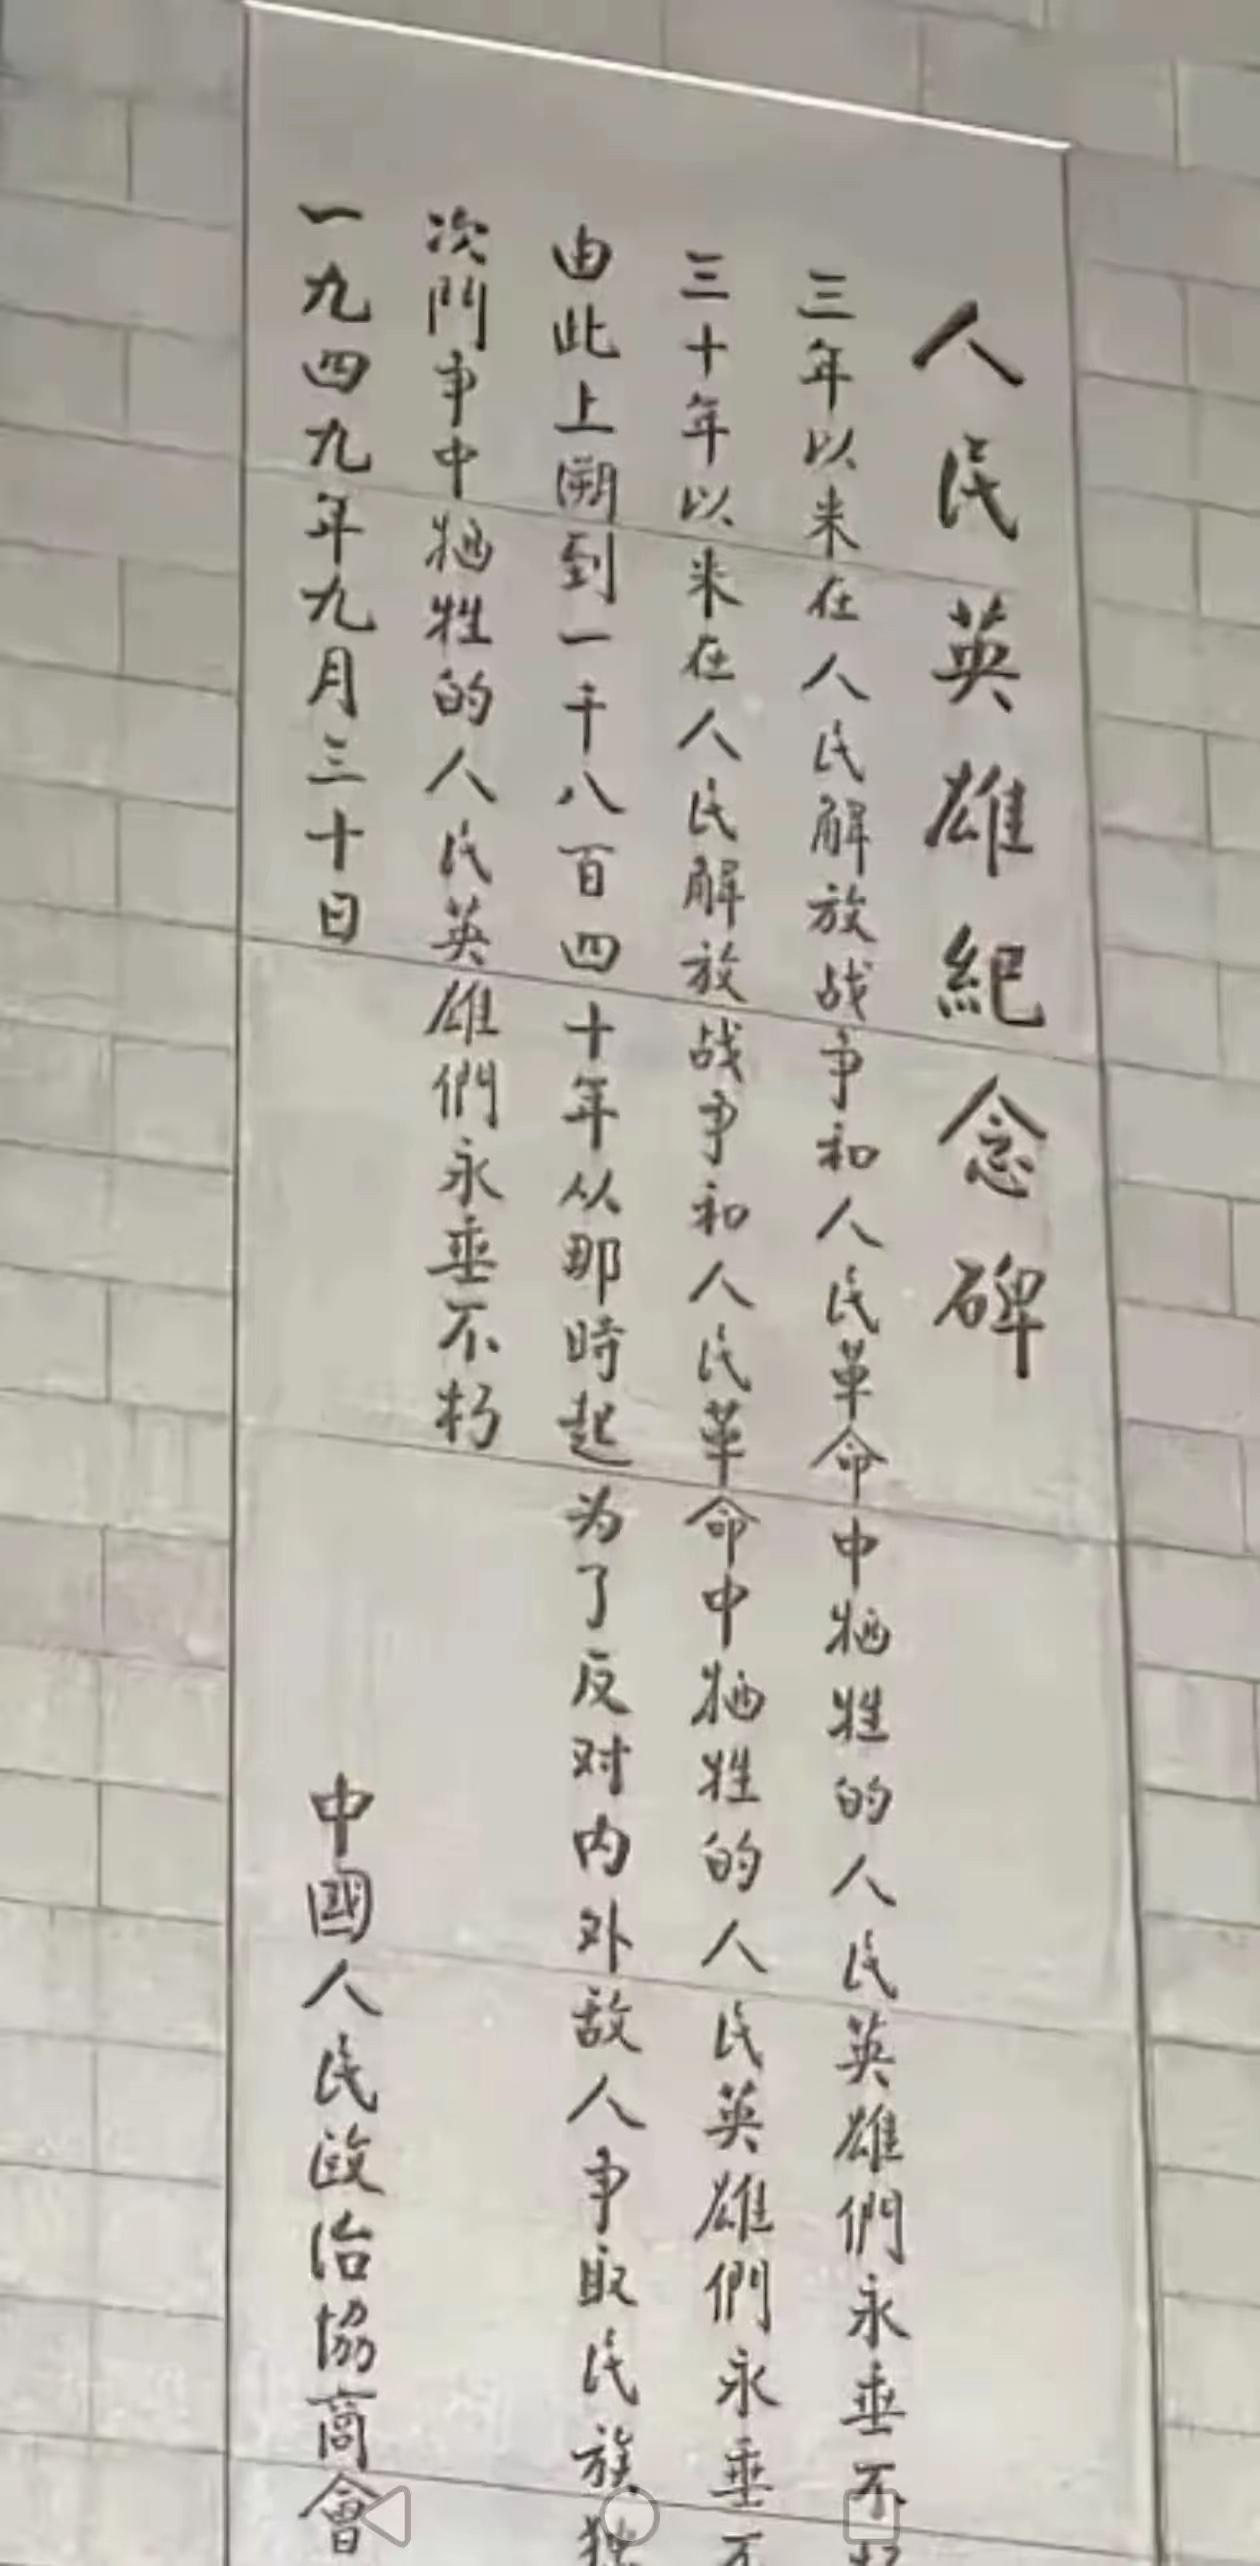 人民英雄紀念碑
三年以来在人民解放战争和人民革命中牺牲的人民英雄們永垂不
三十年以来在人民解放战争和人民革命中牺牲的人民英雄們永垂不
由此上溯到一千八百四十年从那時起为了反对内外敌人争取民族独
次鬥争中牺牲的人民英雄們永垂不朽
一九四九年九月三十日 中國人民政治協商會